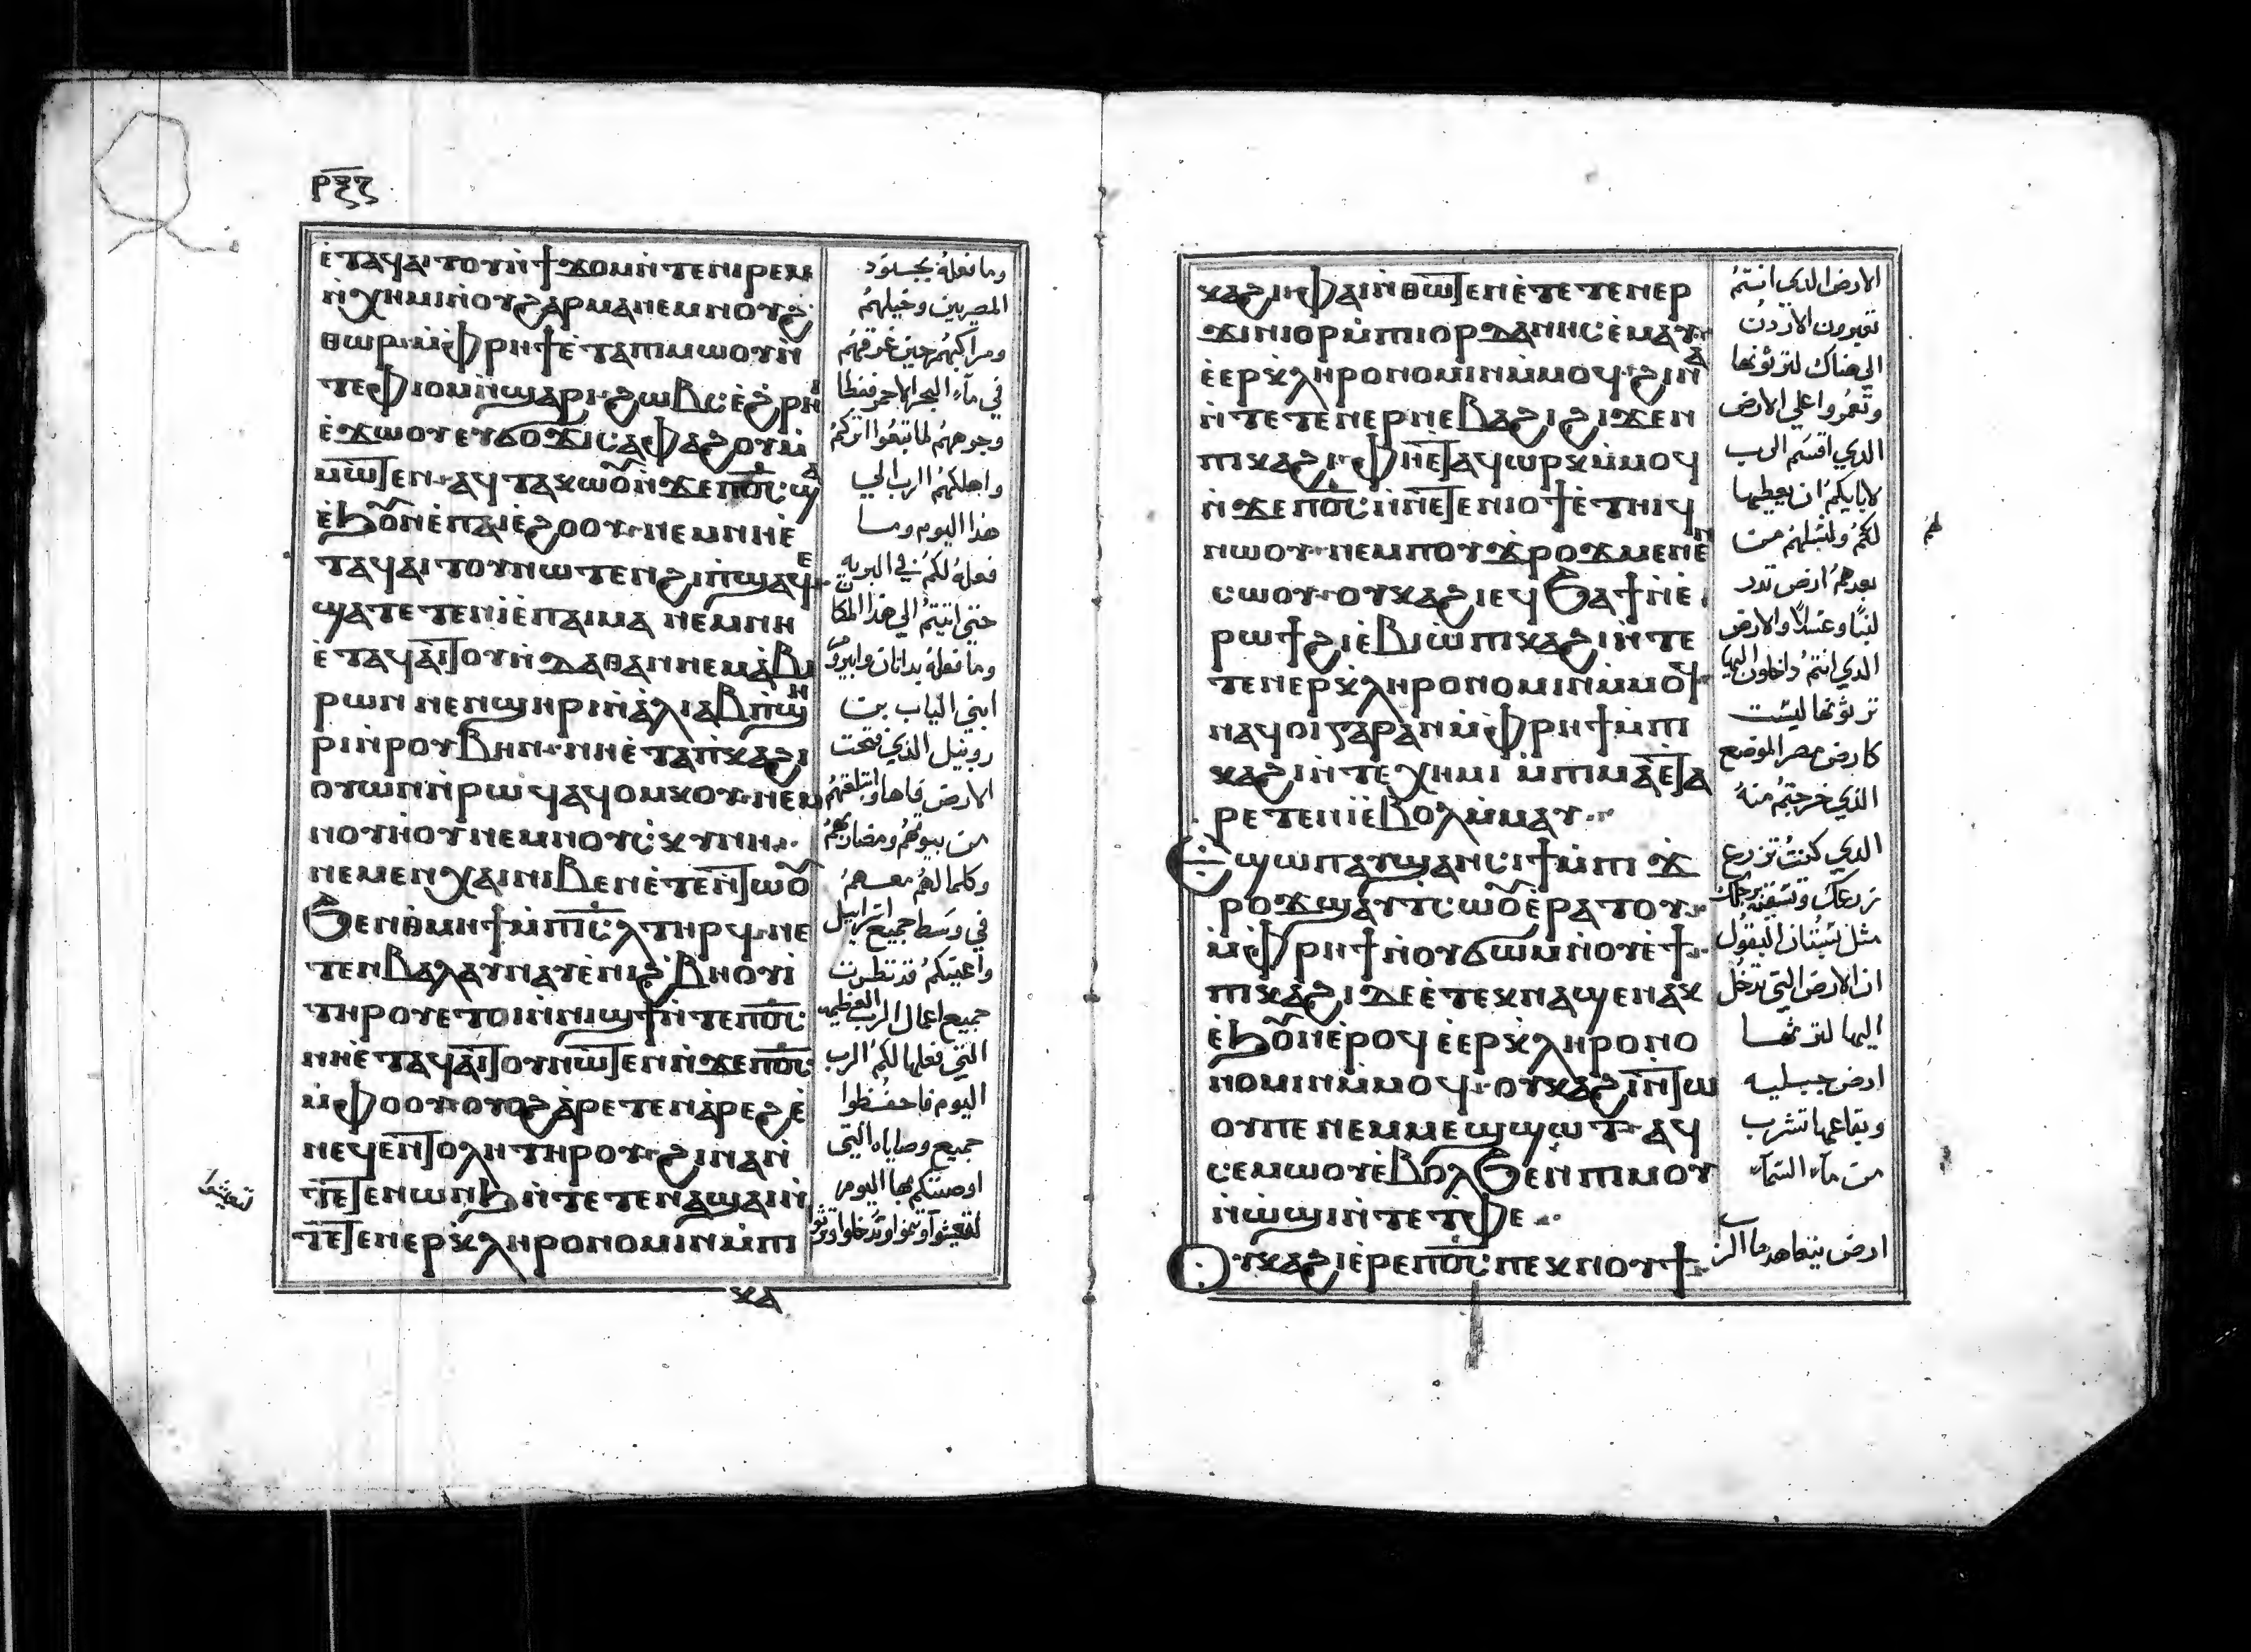 ⲣⲝⲍ
ⲉ̀ⲧⲁϥⲁⲓⲧⲟⲩⲛ̀ϯϫⲟⲙⲛ̀ⲧⲉⲛⲓⲣⲉⲙ
ⲛ̀ⲭⲏⲙⲓⲛⲟⲩϩⲁⲣⲙⲁⲛⲉⲙⲛⲟⲩϩ̀
ⲑⲱⲣ·ⲙ̀ⲫⲣⲏϯⲉ̀ⲧⲁⲡⲓⲙⲱⲟⲩⲛ̀
ⲧⲉⲫⲓⲟⲙⲛ̀ϣⲁⲣⲓ·ϩⲱⲃⲥⲉ̀ϩ̀ⲣⲏⲓ
ⲉ̀ϫⲱⲟⲩⲉⲩϭⲟϫⲓⲥⲁⲫⲁϩⲟⲩⲙ̀
ⲙⲱⲧⲉⲛ·ⲁϥⲧⲁⲕⲱⲟⲩⲛ̀ϫⲉⲡⲟ̅ⲥ̅ϣⲁ
ⲉ̀ϧⲟⲩⲛⲉ̀ⲡⲁⲓⲉ̀ϩⲟⲟⲩ·ⲛⲉⲙⲛⲏⲉ̀
ⲧⲁϥⲁⲓⲧⲟⲩⲛⲱⲧⲉⲛϩⲓⲡ̀ϣⲁϥⲉ·
ϣⲁⲧⲉⲧⲉⲛⲓ̀ⲉ̀ⲡⲁⲓⲙⲁ ⲛⲉⲙⲛⲏ
ⲉ̀ⲧⲁϥⲁⲓⲧⲟⲩⲛ̀ⲇⲁⲑⲁⲛⲛⲉⲙⲁ̀ⲃⲓ
ⲣⲱⲛ ⲛⲉⲛϣⲏⲣⲓⲛ̀ⲁ̀ⲗⲓⲁⲃⲡ̀ϣⲏ
ⲣⲓⲛ̀ⲣⲟⲩⲃⲏⲛ·ⲛⲏⲉ̀ⲧⲁⲡ̀ⲕⲁϩⲓ
ⲟⲩⲱⲛⲛ̀ⲣⲱϥⲁϥⲟⲙⲕⲟⲩ·ⲛⲉⲙ
ⲛⲟⲩⲏ̀ⲟⲩⲛⲉⲙⲛⲟⲩⲥ̀ⲕⲩⲛⲏ·
ⲛⲉⲙⲉⲛⲭⲁⲓⲛⲓⲃⲉⲛⲉ̀ⲧⲉⲛⲧⲱⲟⲩ
ϧⲉⲛⲑ̀ⲙⲏϯⲙ̀ⲡⲓⲥ̅ⲗ̅ⲧⲏⲣϥ·ⲛⲉ
ⲧⲉⲛⲃⲁⲗⲁⲩⲛⲁⲩⲉ̀ⲛⲓϩ̀ⲃⲏⲟⲩⲓ̀
ⲧⲏⲣⲟⲩⲉⲧⲟⲓⲛ̀ⲛⲓϣϯⲛ̀ⲧⲉⲡⲟ̅ⲥ̅
ⲛⲏⲉ̀ⲧⲁϥⲁⲓⲧⲟⲩⲛⲱⲧⲉⲛⲛ̀ϫⲉⲡⲟ̅ⲥ̅
ⲙ̀ⲫⲟⲟⲩ·ⲟⲩⲟϩⲁ̀ⲣⲉⲧⲉⲛⲁ̀ⲣⲉϩⲉ̀
ⲛⲉϥⲉⲛⲧⲟⲗⲏⲧⲏⲣⲟⲩ·ϩⲓⲛⲁⲛ̀
ⲧⲉⲧⲉⲛⲱⲛϧⲛ̀ⲧⲉⲧⲉⲛⲁϣⲁⲓⲛ̀
ⲧⲉⲧⲉⲛⲉⲣⲕ̀ⲗⲏⲣⲟⲛⲟⲙⲓⲛⲙ̀ⲡⲓ
ⲕⲁ
وما فعله بجنود
المصريين وخيلهمُ
ومراكبهُم حين غرقهُم
في مآء البحر الاحمر فغطا
وجوههُم لما تبعُوا اثركمُ
واهلكهُم الرب الي
هذا اليوم وما
فعلهُ لكمُ في البريه
حتي اتيتمُ الي هذا المكان
وما فعله بداثان وابيرون
ابني الياب بن
روبيل الذي فتحت
الارض فاها وابتلعتهُم
من بيوتهُم ومضاربهُم
وكلما لهُم معهمُ
في وسَط جميع اسراييل
واعينكمُ قد نظرت
جميع اعمال الرب العظيمه
التي فعلها لكمُ الرب
اليوم فاحفظوا
جميع وصاياه التي
اوصيتكم بها اليوم
ⲕⲁϩⲓⲛ·ⲫⲁⲓⲛ̀ⲑⲱⲧⲉⲛⲉ̀ⲧⲉⲧⲉⲛⲉⲣ
ϫⲓⲛⲓⲟⲣⲙ̀ⲡⲓⲟⲣⲇⲁⲛⲏⲥⲉ̀ⲙⲁⲩ·
ⲉ̀ⲉⲣⲕ̀ⲗⲏⲣⲟⲛⲟⲙⲓⲛⲙ̀ⲙⲟϥ·ϩⲓⲛⲁ
ⲛ̀ⲧⲉⲧⲉⲛⲉⲣⲛⲉⲃⲁϩⲓϩⲓϫⲉⲛ
ⲡⲓⲕⲁϩⲓ·ⲫⲏⲉ̀ⲧⲁϥⲱⲣⲕⲙ̀ⲙⲟϥ
ⲛ̀ϫⲉⲡⲟ̅ⲥ̅ⲛ̀ⲛⲉⲧⲉⲛⲓⲟϯⲉ̀ⲧⲏⲓϥ
ⲛⲱⲟⲩ·ⲛⲉⲙⲡⲟⲩϫ̀ⲣⲟϫⲙⲉⲛⲉⲛ
ⲥⲱⲟⲩ·ⲟⲩⲕⲁϩⲓⲉϥϧⲁϯⲛ̀ⲉ̀
ⲣⲱϯϩⲓⲉ̀ⲃⲓⲱ̀ⲡⲓⲕⲁϩⲓⲛ̀ⲧⲉ
ⲧⲉⲛⲉⲣⲕ̀ⲗⲏⲣⲟⲛⲟⲙⲓⲛⲙ̀ⲙⲟϥ·
ⲛⲁϥⲟⲓⲅⲁⲣⲁⲛⲙ̀ⲫⲣⲏϯⲙ̀ⲡⲓ
ⲕⲁϩⲓⲛ̀ⲧⲉⲭⲏⲙⲓ ⲙ̀ⲡⲓⲙⲁⲉ̀ⲧⲁ
ⲣⲉⲧⲉⲛⲓ̀ⲉ̀ⲃⲟⲗⲙ̀ⲙⲁⲩ·
Ⲉϣⲱⲡⲁⲩϣⲁⲛⲥⲓϯⲙ̀ⲡⲓ ϫ
ⲣⲟϫϣⲁⲩⲧⲥⲱⲟⲩⲉ̀ⲣⲁⲧⲟⲩ·
ⲙ̀ⲫⲣⲏϯⲛ̀ⲟⲩϭⲱⲙⲛ̀ⲟⲩⲟϯ·
ⲡⲓⲕⲁϩⲓⲇⲉⲉ̀ⲧⲉⲕⲛⲁϣⲉⲛⲁⲕ
ⲉ̀ϧⲟⲩⲛⲉ̀ⲣⲟϥⲉ̀ⲉⲣⲕ̀ⲗⲏⲣⲟⲛⲟ
ⲛⲟⲙⲓⲛⲙ̀ⲙⲟϥ·ⲟⲩⲕⲁϩⲓⲛ̀ⲧⲱ
ⲟⲩⲡⲉ ⲛⲉⲙⲙⲉϣϣⲱⲧ·ⲁϥ
ⲥⲉⲙⲱⲟⲩⲉ̀ⲃⲟⲗϧⲉⲛⲡⲓⲙⲟⲩ
ⲛ̀ϩⲱⲟⲩⲛ̀ⲧⲉⲧ̀ⲫⲉ·
Ⲟⲩⲕⲁϩⲓⲉ̀ⲣⲉⲡⲟ̅ⲥ̅ⲡⲉⲕⲛⲟⲩϯ·
الارض الذي انتمُ
تعبرون الاردن
الي هناك لترثوُنها
وتعمُروا علي الارض
الذي اقسَم الرب
لابايكمُ ان يعطيها
لكمُ ولنسَلهُم من
بعدهمُ ارض تدر
لبنًا وعسَلاً والارض
الذي انتمُ داخلون اليها
ترثوُنها ليسَت
كارض مصر الموضع
الذي خرجتمُ منهُ
الذي كنتُ تزرع
زرعك وتسَقيه برجلك
مثل بسُتان البقوُل
ان الارض التي تدخُل
اليها لترثها
ارض جبليه
وبقاعها تشرب
من مآء السَمآء